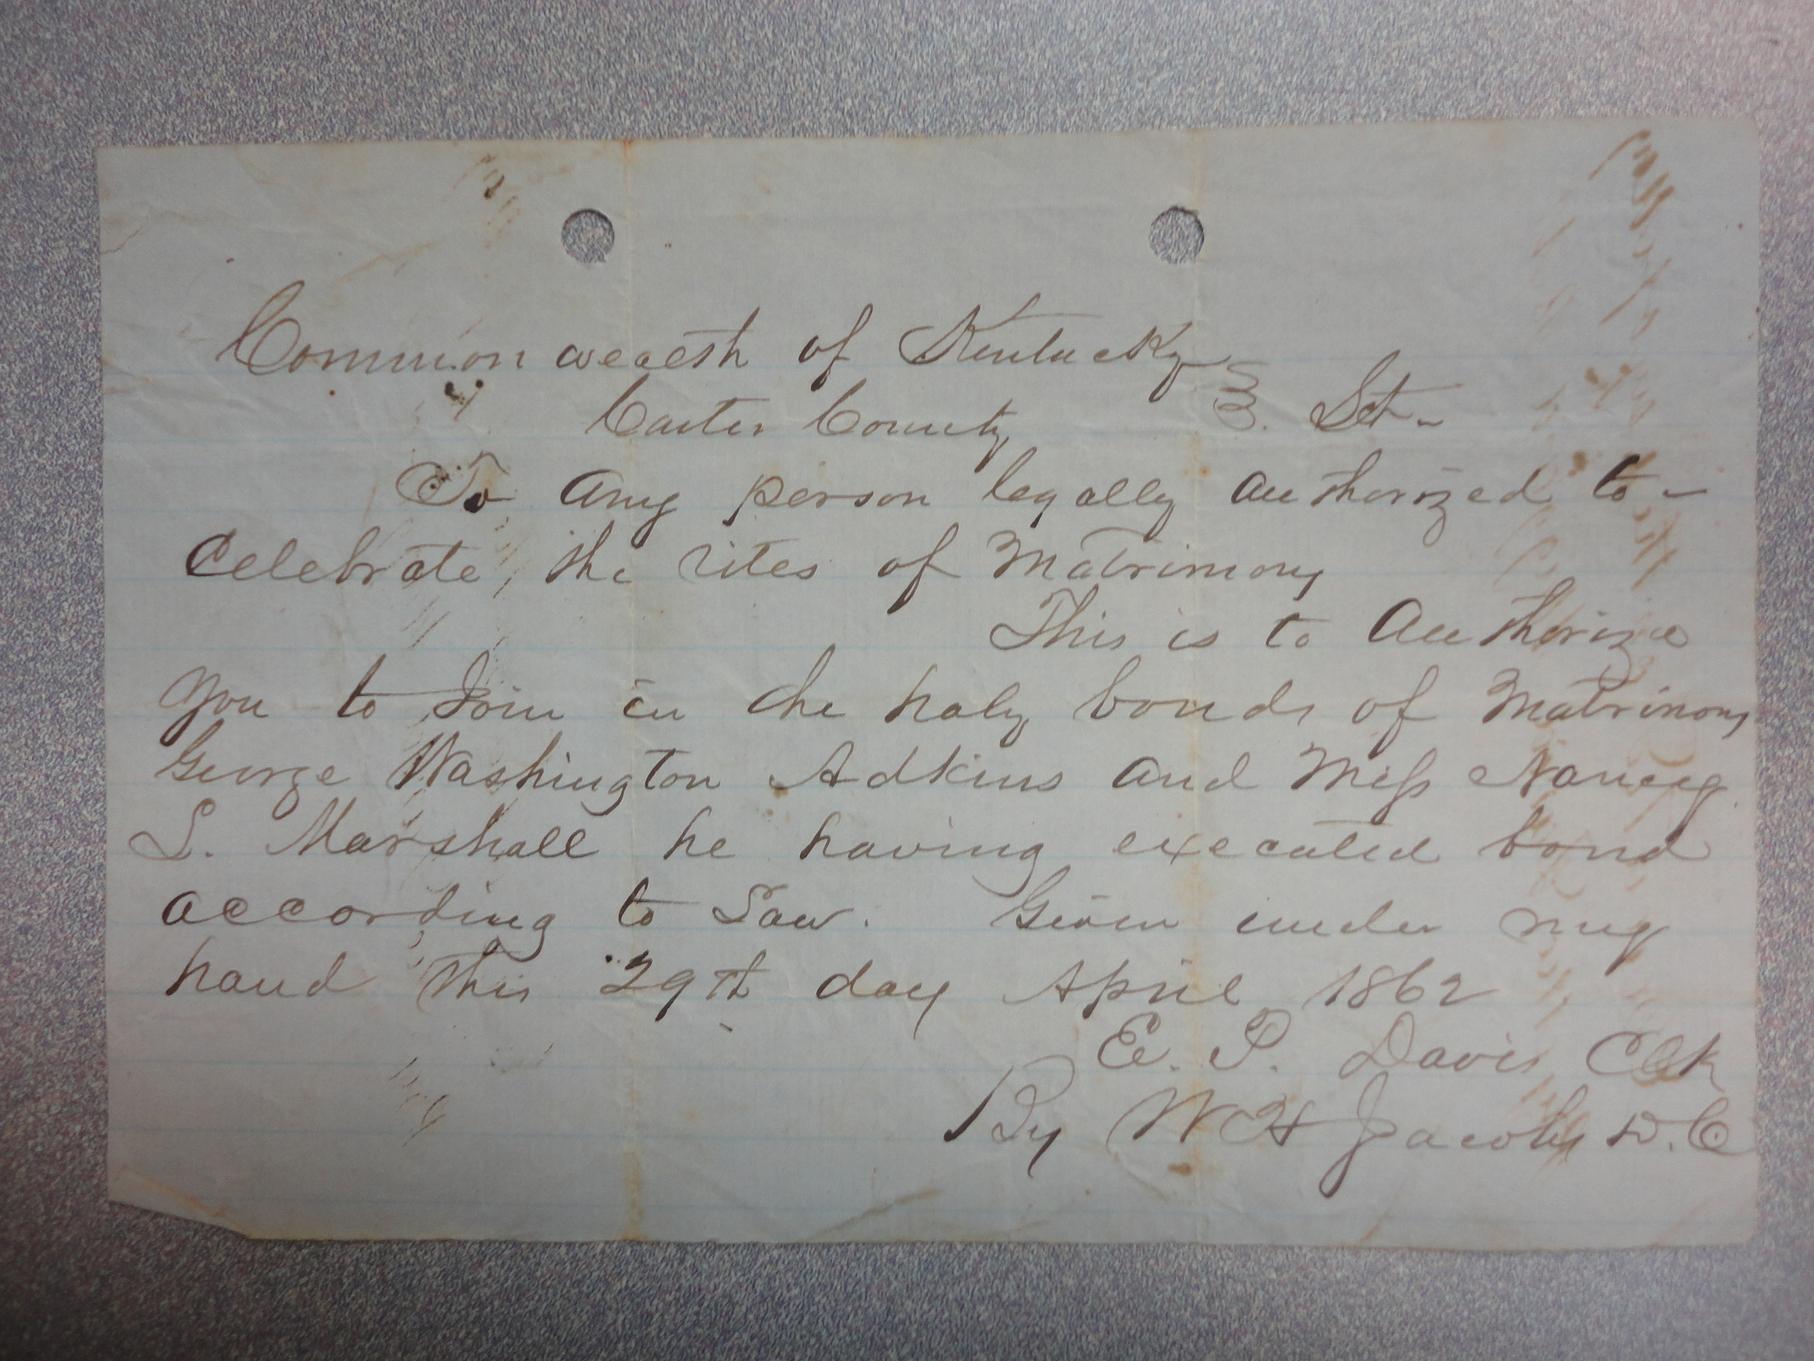 Commonwealth of Kentucky
Carter County } Sct.
To any person legally authorized to
Celebrate, the rites of Matrimony
This is to Authorize
you to Join in the holy bonds of Matrimony
George Washington Adkins and Miss Nancy
S. Marshall he having executed bond
according to Law. Given under my
hand this 29th day April 1862
E. P. Davis Clk
By W H Jacobs D. C